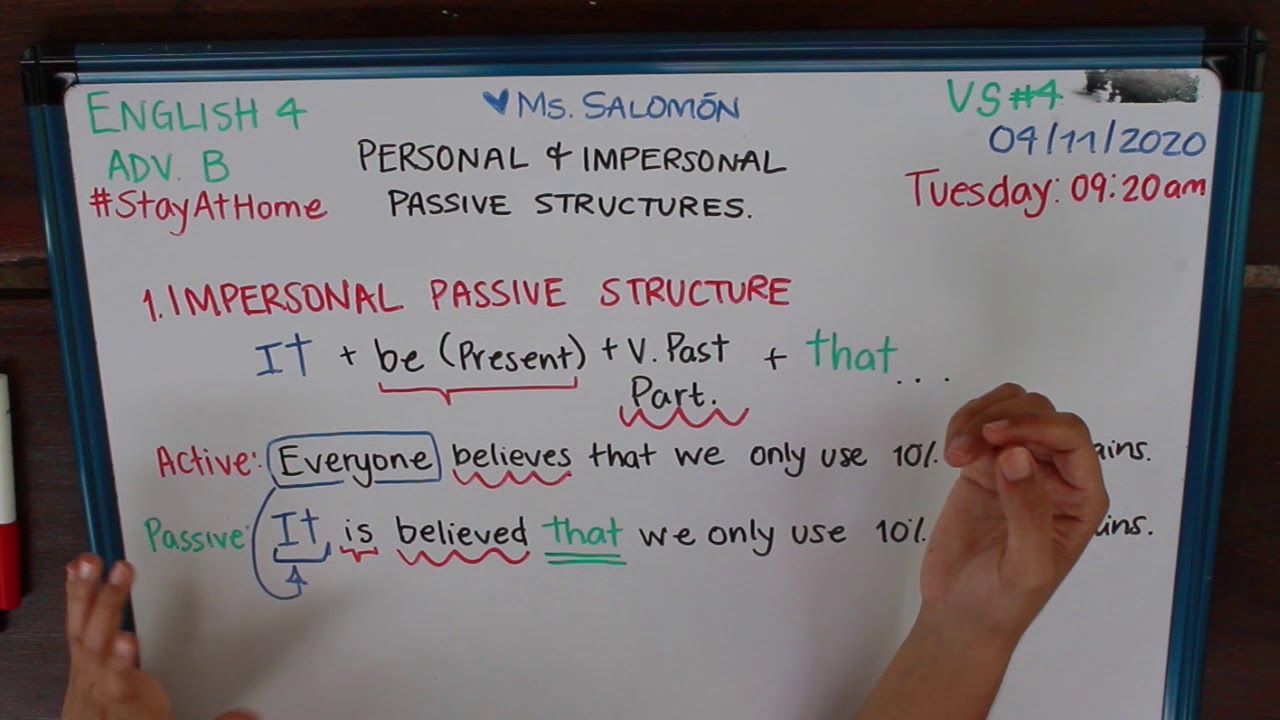 ENGLISH 4
ADV. B
#StayAtHome
♥Ms. SALOMÓN
PERSONAL & IMPERSONAL
PASSIVE STRUCTURES.
VS#4
04/11/2020
Tuesday: 09:20am
1. IMPERSONAL PASSIVE STRUCTURE
It + be (Present) + V. Past + that...
Part.
Active: Everyone believes that we only use 10% ains.
Passive: It is believed that we only use 10% ins.